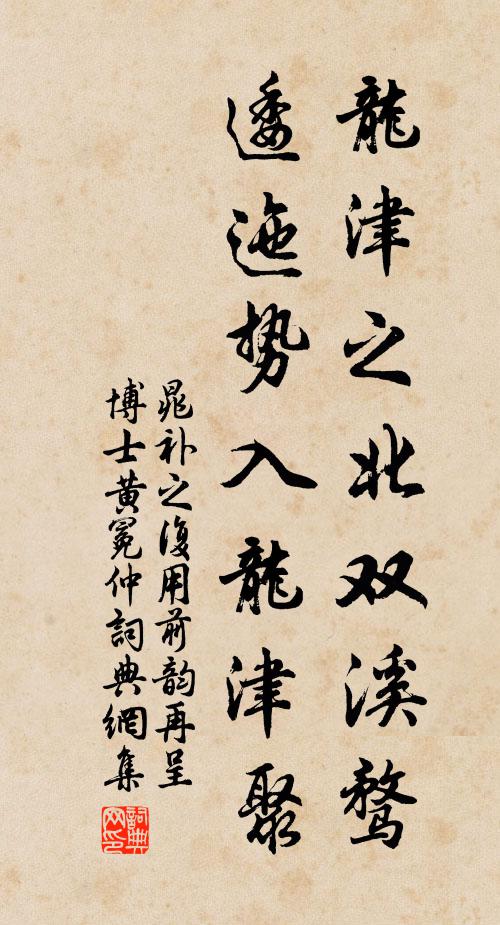 龍津之北双溪骛
逶迤势入龍津聚
晁补之復用前韵再呈
博士黄冕仲詞典網集
詞典网印